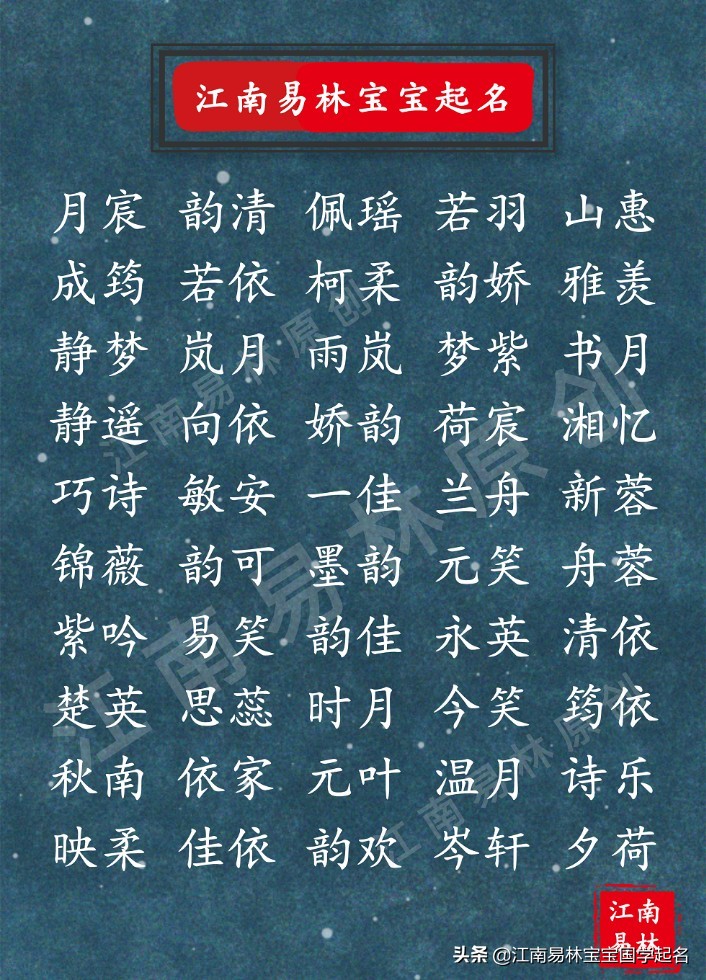 江南易林宝宝起名
月宸 韵清 佩瑶 若羽 山惠
成筠 若依 柯柔 韵娇 雅羡
静梦 岚月 雨岚 梦紫 书月
静遥 向依 娇韵 荷宸 湘忆
巧诗 敏安 一佳 兰舟 新蓉
锦薇 韵可 墨韵 元笑 舟蓉
紫吟 易笑 韵佳 永英 清依
楚英 思蕊 时月 今笑 筠依
秋南 依家 元叶 温月 诗乐
映柔 佳依 韵欢 岑轩 夕荷
江南易林原创
江南易林原创
江南易林原创
江南
易林
头条 @江南易林宝宝国学起名